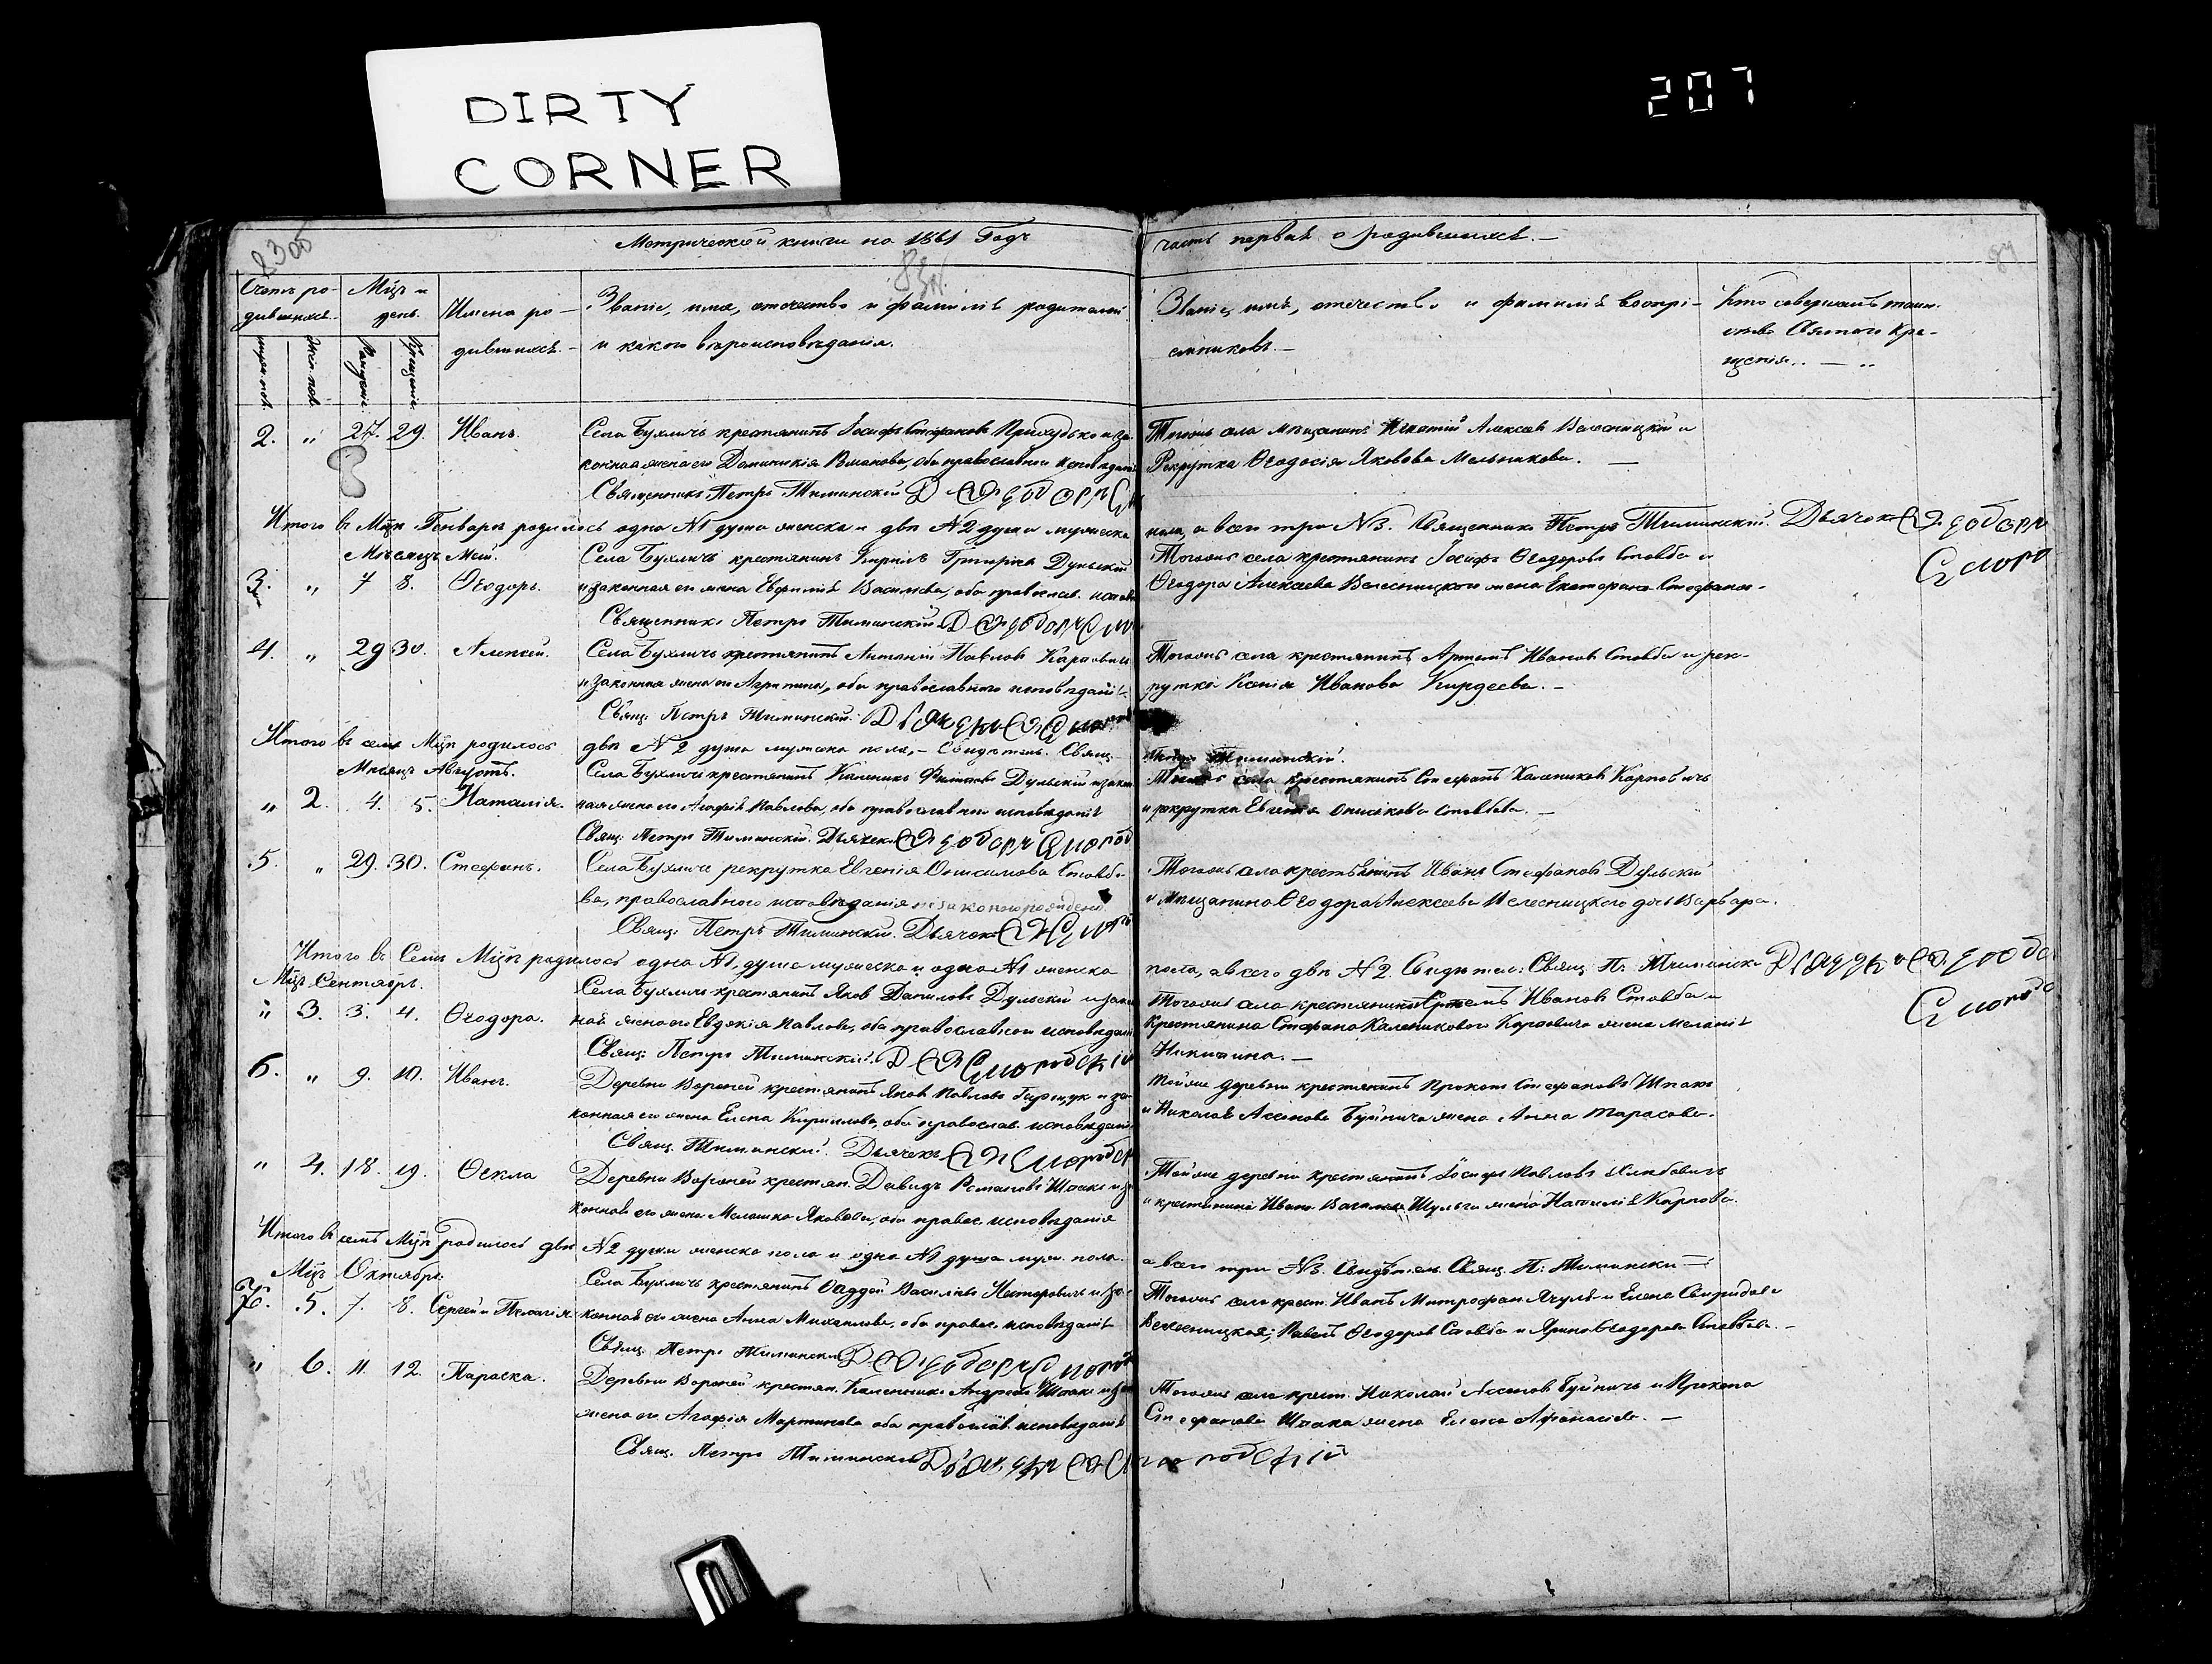 DIRTY
CORNER
207
Метрической книги на 1861 Годъ
часть первая о родившихся. —
87
Счетъ ро-
дившихся.
Мѣць и
день.
Имена ро-
дившихся. —
Званіе, имя, отчество и фамилія родителей
и какого вѣроисповѣданія.
Званіе, имя, отчество и фамилія воспрі-
емниковъ. —
Кто совершалъ таин-
ство Святаго Кре-
щенія.
мужеск. пол.
Женск. пол.
Рожденіе.
Крещеніе.
2. " 27. 29. Иванъ. Села Бухличь крестянинъ Іосифъ Стефановъ и за-
конная жена его Доминикія Романова, оба православнаго исповѣданія
Священникъ Петръ Тиминскій Д. Ѳеодоръ
Тогожъ села мѣщанинъ Игнатій Алексѣевъ Велесницкій и
Рекрутка Ѳеодосія Яковова Мельникова. —
Итого въ Мцѣ Генварѣ родилось одна №1 душа женска и двѣ №2 души мужеска
пола, а всего три №3. Священникъ Петръ Тиминскій. Дьячокъ Ѳеодоръ
Мѣсяцъ Май.
3. " 7 8. Ѳеодоръ. Села Бухличь крестянинъ Кирилъ Григорьевъ Дульскій
и законная его жена Евфимія Васильева, оба православ. испов
Священникъ Петръ Тиминскій Д. Ѳеодоръ
Тогожъ села крестянинъ Іосифъ Ѳеодоровъ Столба и
Ѳеодора Алексѣева Велесницкого жена Екатерина Стефанова.
4. " 29 30. Алексѣй. Села Бухличь крестянинъ Антоній Павловъ Карповичъ
и законная жена его Агрипина, оба православнаго исповѣданія.
Свящ. Петръ Тиминскій. Дьячекъ
Тогожъ села крестянинъ Артемъ Ивановъ Столба и рек-
рутка Ксенія Иванова Кирдеева. —
Итого въ семъ Мцѣ родилось двѣ №2 душа мужска пола, — Свидѣтель. Свящ.
Петръ Тиминскій.
Мѣсяцъ Августъ.
" 2. 4. 5. Наталія. Села Бухличь крестянинъ Каленикъ Филиповъ Дульскій и закон
ная жена его Агафія Павлова, оба православнаго исповѣданія
Свящ. Петръ Тиминскій. Дьячекъ Ѳеодоръ
села крестянинъ Стефанъ Калениковъ Карповичъ
и рекрутка Евгенія Онисимова Столбова. —
5. " 29. 30. Стефанъ. Села Бухличь рекрутка Евгенія Онисимова Столбо-
ва, православнаго исповѣданія незаконнорожденъ
Свящ. Петръ Тиминскій. Дьячекъ
Тогожъ села крестьянинъ Иванъ Стефановъ Дульскій
и мѣщанина Ѳеодора Алексѣева Велесницкого дочь Варвара.
Итого въ Семъ Мцѣ родилось одна №1, душа мужеска и одна №1 женска
пола, а всего двѣ №2. Свидѣтел: Свящ. П: Тиминскій Дьячекъ Ѳеодоръ
Мцъ Сентябрь.
" 3. 3. 4. Ѳеодора. Села Бухличь крестянинъ Яковъ Даниловъ Дульскій и закон
ная жена его Евдокія Павлова, оба православнаго исповѣданія
Свящ. Петръ Тиминскій. Д.
Тогожъ села крестянинъ Артемъ Ивановъ Столба и
крестянина Стефана Каленикового Карповича жена Меланія
Никитина. —
6. " 9. 10. Иванъ. Деревни Вороней крестянинъ Яковъ Павловъ и за-
конная его жена Елена Кирилова, оба православ. исповѣданія
Свящ. Тиминскій. Дьячекъ
Тойже деревни крестянинъ Прокопъ Стефановъ Шпакъ
и Николая Аксенова Буйнича жена Анна Тарасова.
" 4. 18. 19. Ѳекла Деревни Вороней крестян. Давидъ Романовъ Шпакъ и за
конная его жена Малашка Яковова, оба правос. исповѣданія
Тойже деревни крестянинъ Іосифъ Павловъ
и крестянина Ивана Васильева Шульги жена Наталія Карпова.
Итого въ семъ Мцѣ родилось двѣ №2 души женска пола и одна №1 душа муж. пола.
а всего три №3. Свидѣтель Свящ. П: Тиминскій —
Мцъ Октябрь.
7. 5. 7. 8. Сергей и Пелагія Села Бухличь крестянинъ Ѳаддей Васильевъ Нестеровичъ и за-
конная его жена Анна Михаилова, оба правос. исповѣданія
Свящ. Петръ Тиминскій Д. Ѳеодоръ
Тогожъ села крест. Иванъ Митрофановъ и Елена Свиридова
Велесницкая; Павелъ Ѳеодоровъ Столба и Ярина Ѳеодорова Столбова. —
" 6. 11. 12. Параска. Деревни Вороней крестян. Каленникъ Андреевъ Шпакъ и зак
жена его Агафія Мартинова оба православ. исповѣданія
Свящ. Петръ Тиминскій Дьячекъ
Тогожъ села крест. Николай Аксеновъ Буйничъ и Прокопа
Стефанова Шпака жена Елена Афанасіева. —